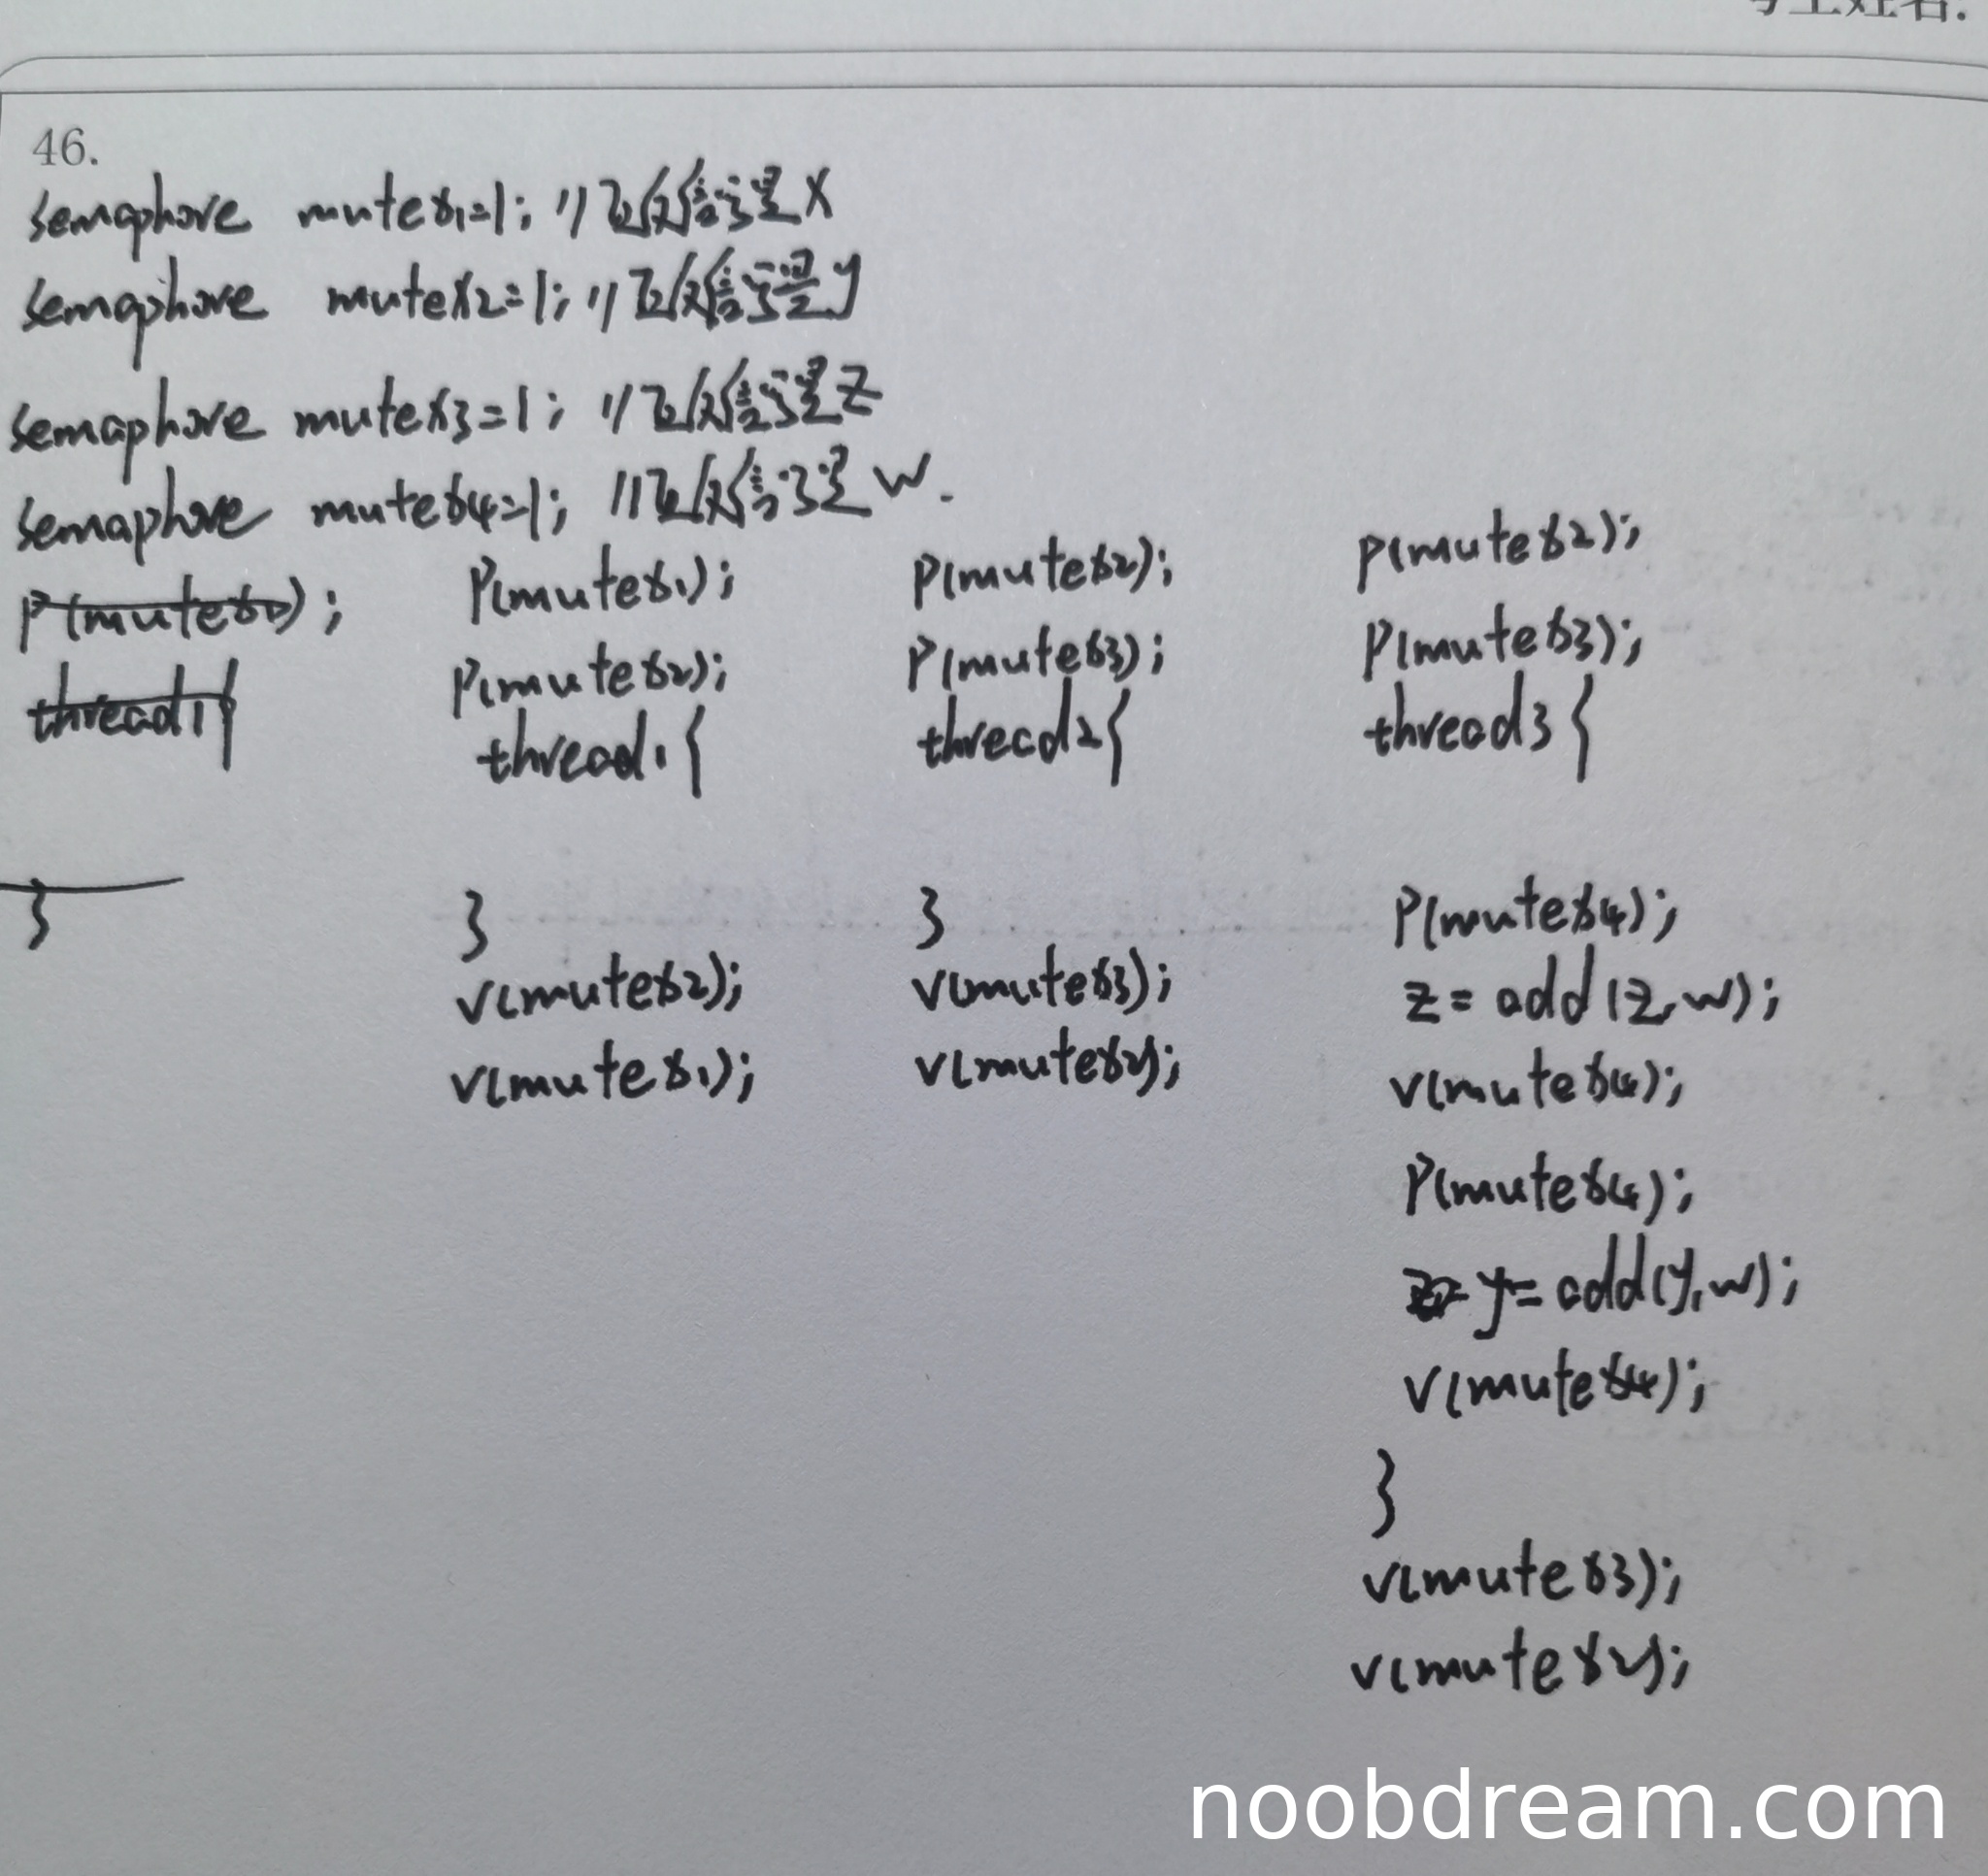 考生姓名:
46.
semaphore mutex1=1; //互斥信号量X
semaphore mutex2=1; //互斥信号量y
semaphore mutex3=1; //互斥信号量Z
semaphore mutex4=1; //互斥信号量W.
P(mutex1);
thread1{
}
P(mutex1);
P(mutex2);
thread1{
}
V(mutex2);
V(mutex1);
P(mutex2);
P(mutex3);
thread2{
}
V(mutex3);
V(mutex2);
P(mutex2);
P(mutex3);
thread3{
P(mutex4);
z=add(z,w);
V(mutex4);
P(mutex4);
y=add(y,w);
V(mutex4);
}
V(mutex3);
V(mutex2);
noobdream.com